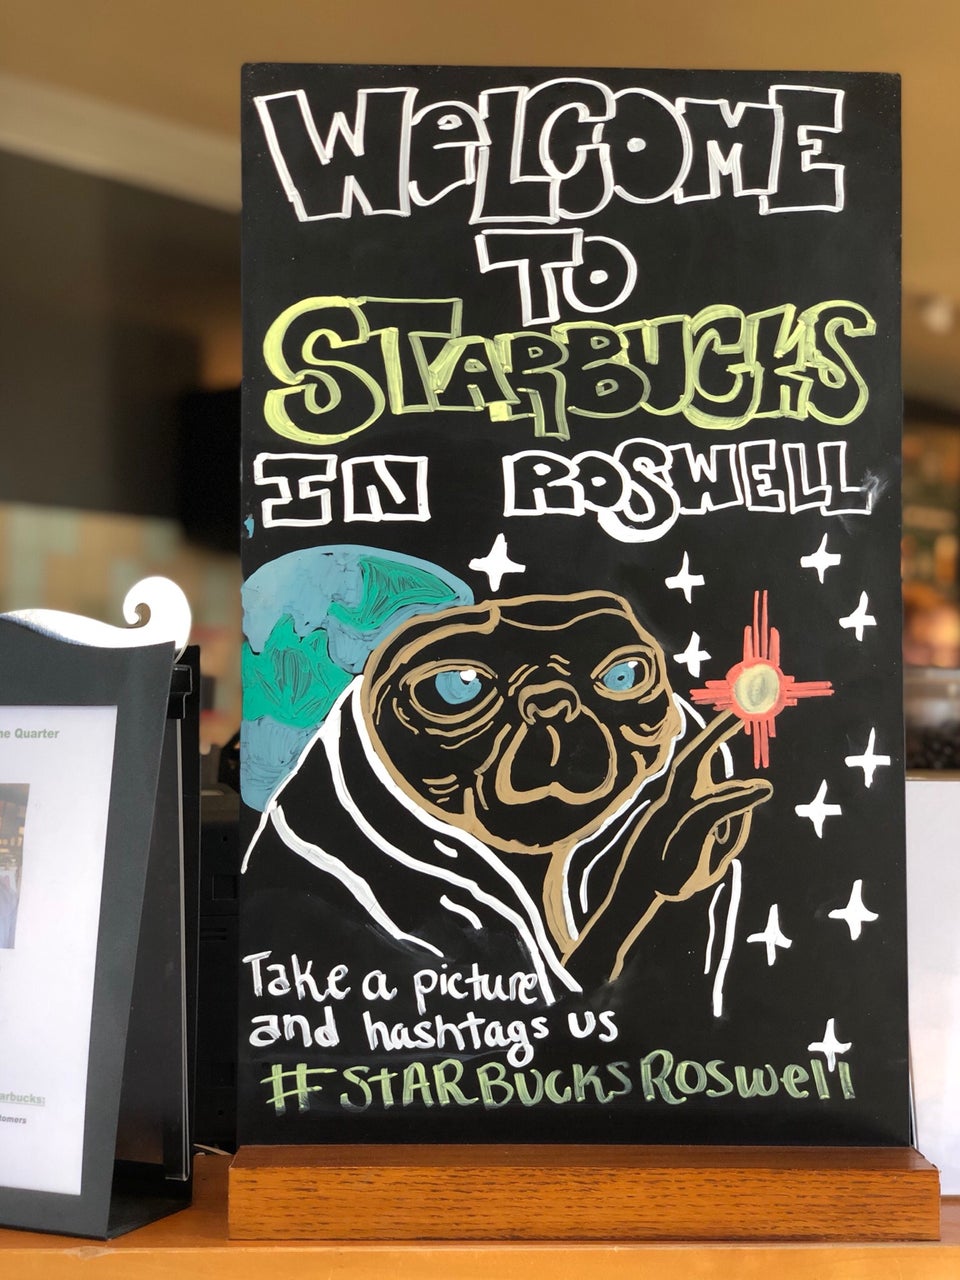 WeLCOME
TO
STARBUCKS
IN ROSWELL
Take a picture
and hashtags us
#STARBUCKSRoswell
ne Quarter
arbucks:
tomers